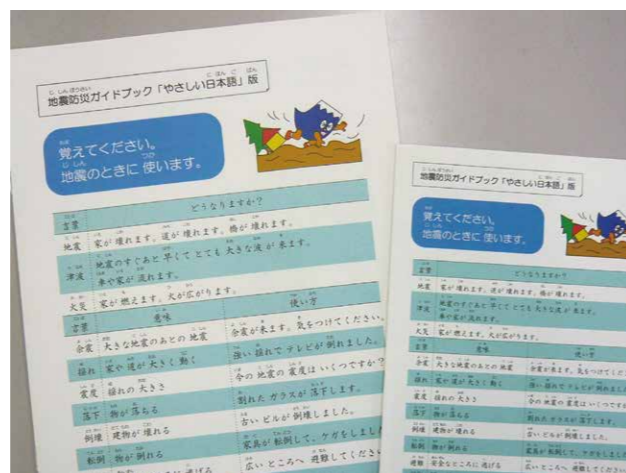 地震防災ガイドブック「やさしい日本語」版
覚えてください。
地震のときに 使います。
言葉 どうなりますか？
地震 家が 壊れます。道が 壊れます。橋が 壊れます。
津波 地震のすぐあと 早くて とても 大きな 波が 来ます。
車や家が 流れます。
火災 家が 燃えます。火が 広がります。
言葉 意味 使い方
余震 大きな 地震の あとの 地震 余震が 来ます。気を つけて ください。
揺れ 家や 道が 大きく 動く 強い 揺れで テレビが 倒れました。
震度 揺れの 大きさ 今の 地震の 震度は いくつですか？
落下 物が 落ちる 割れた ガラスが 落下します。
倒壊 建物が 壊れる 古い ビルが 倒壊しました。
転倒 物が 倒れる 家具が 転倒して、ケガを しまし
広い ところへ 避難して くださ
地震防災ガイドブック「やさしい日本語」版
覚えてください。
地震のときに 使います。
言葉 どうなりますか？
地震 家が 壊れます。道が 壊れます。橋が 壊れます。
津波 地震のすぐあと 早くて とても 大きな 波が 来ます。
車や家が 流れます。
火災 家が 燃えます。火が 広がります。
言葉 意味 使い方
余震 大きな 地震の あとの 地震 余震が 来ます。気を つけて くだ
揺れ 家や 道が 大きく 動く 強い 揺れで テレビが 倒れまし
震度 揺れの 大きさ 今の 地震の 震度は いくつです
落下 物が 落ちる 割れた ガラスが 落下します。
倒壊 建物が 壊れる 古い ビルが 倒壊しました。
転倒 物が 倒れる 家具が 転倒して、ケガを し
避難 安全な ところに 逃げる 広い ところへ 避難して